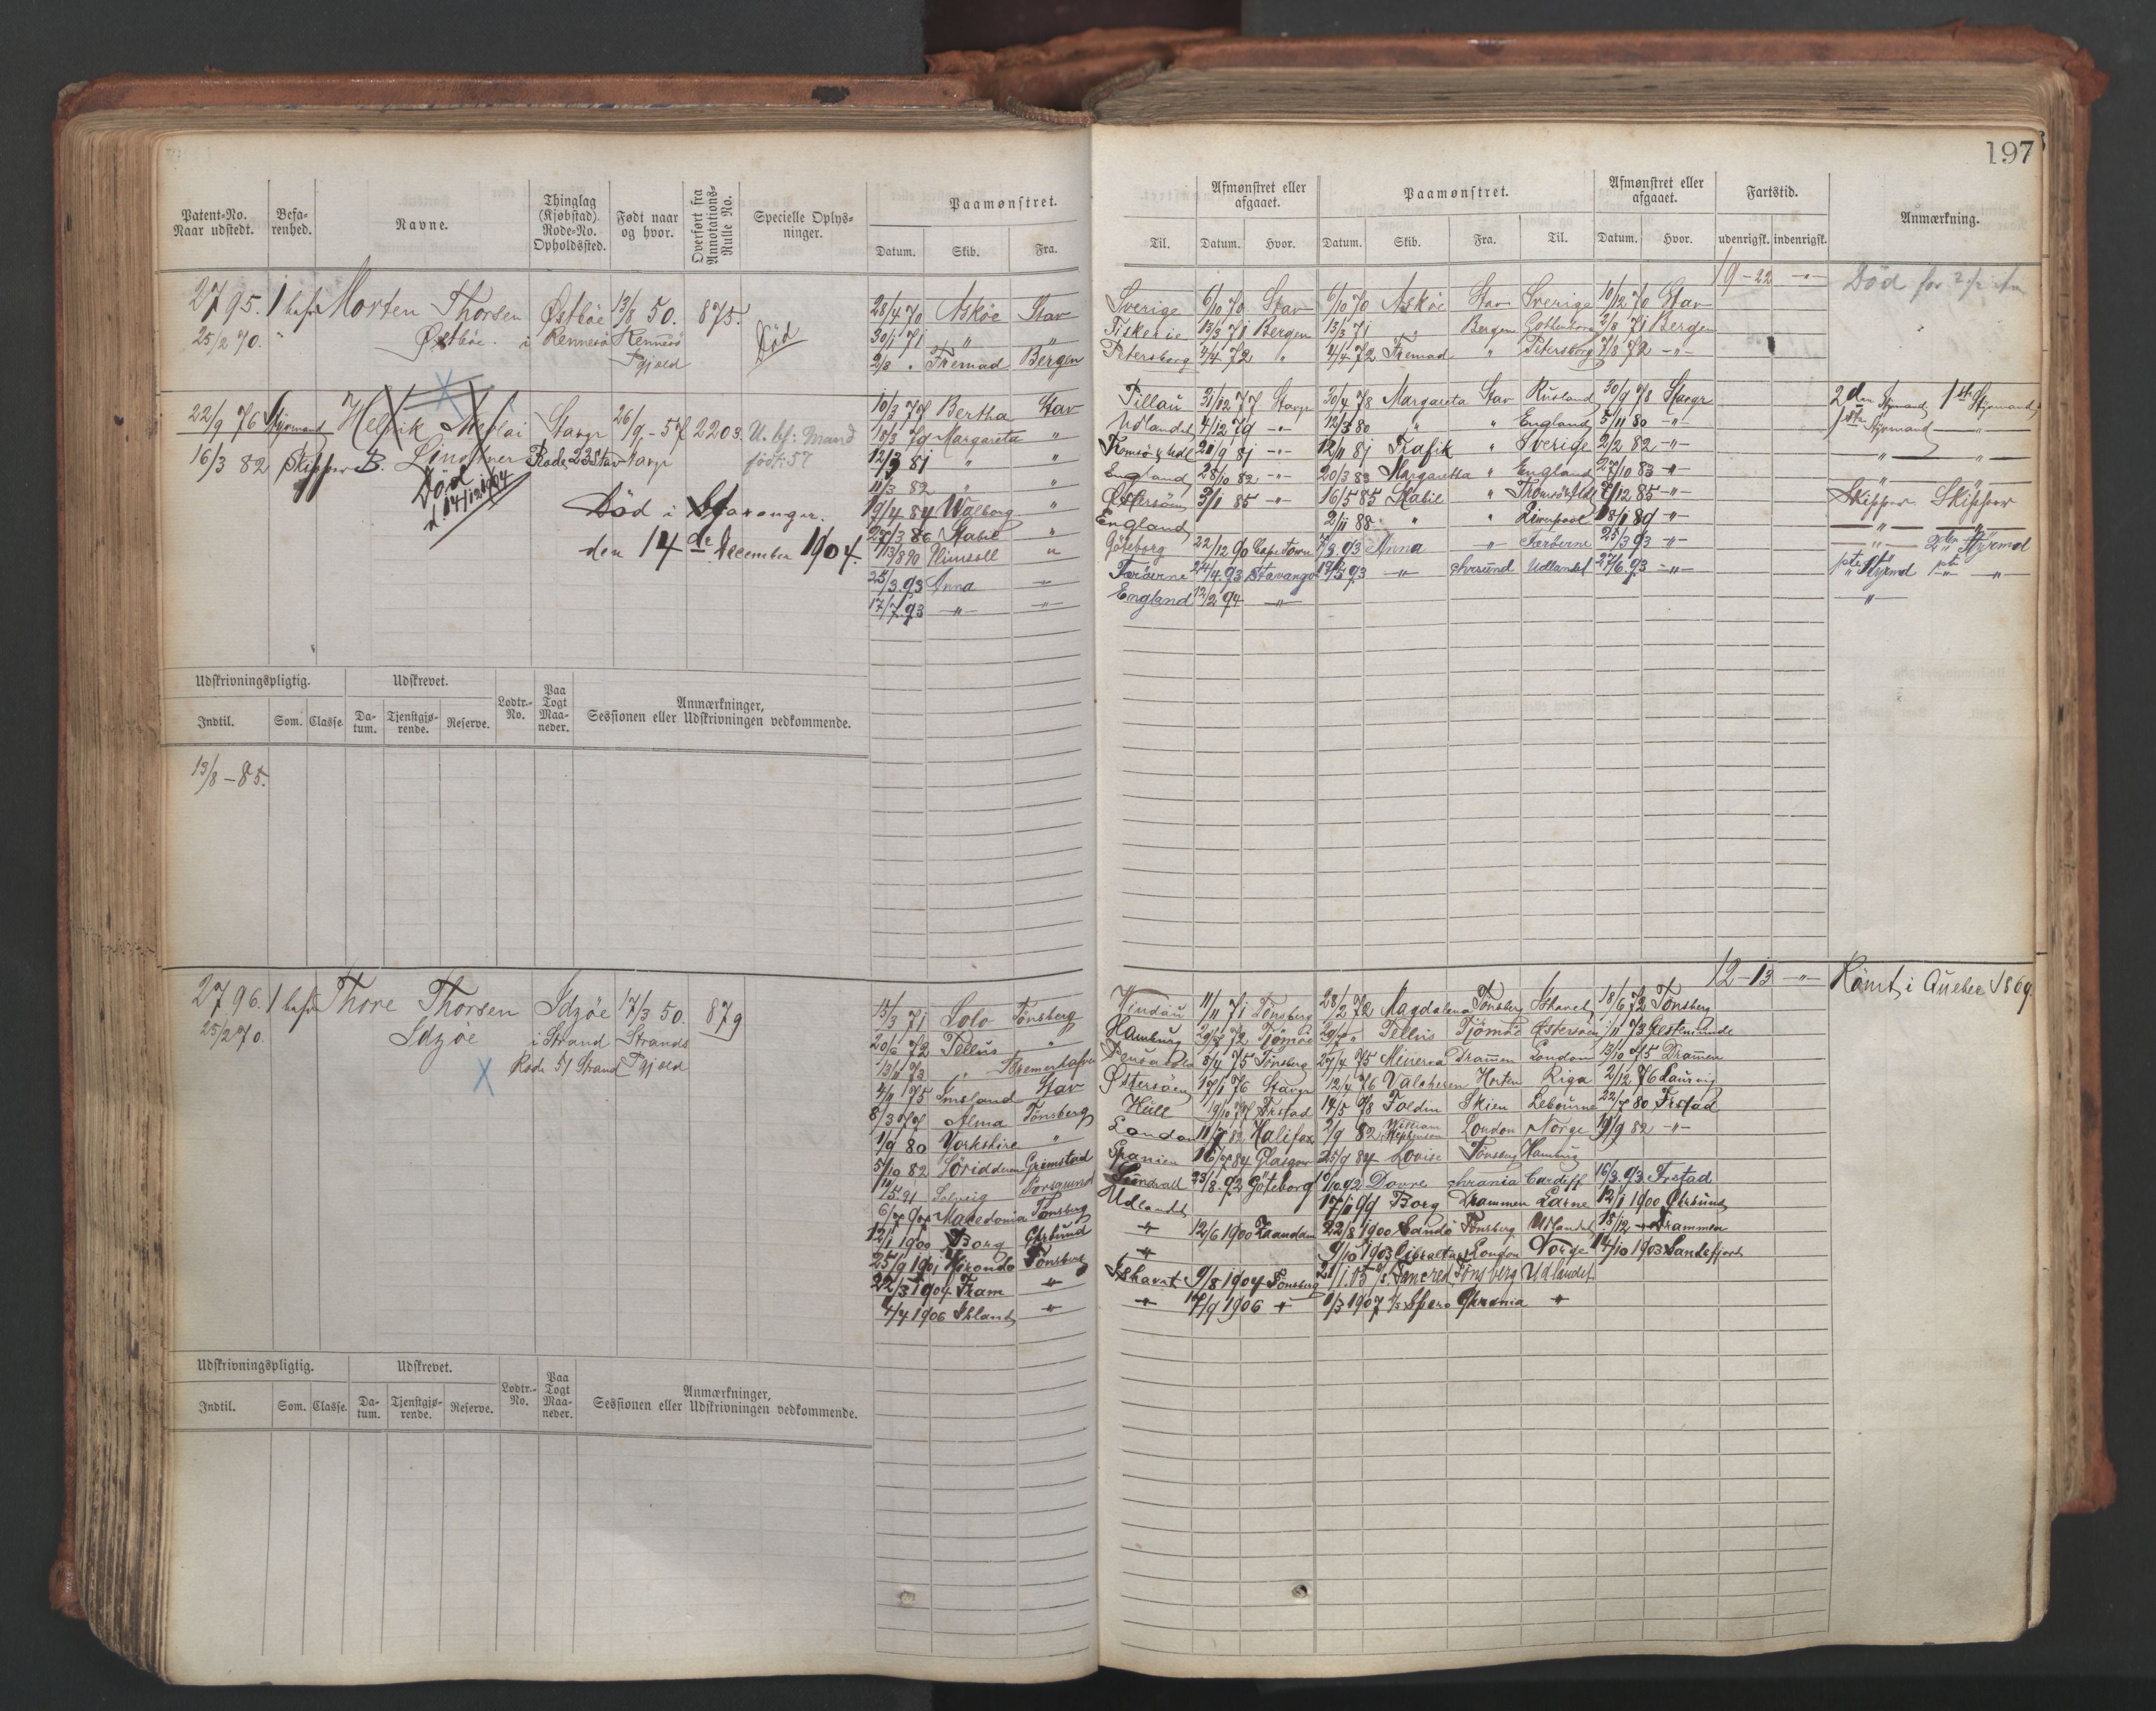 197
Patent-No. Naar udstedt. Befarenhed. Navne. Thinglag (Kjøbstad). Rode-No. Opholdssted. Født naar og hvor. Overført fra Annotations-Rulle No. Specielle Oplysninger. Paamønstret. Datum. Skib. Fra.
Til. Afmønstret eller afgaaet. Datum. Hvor. Paamønstret. Datum. Skib. Fra. Til. Afmønstret eller afgaaet. Datum. Hvor. Fartstid. udenrigsk. indenrigsk. Anmærkning.
2795. 1 Morten Thorsen Østbøe 13/8 50. 875.
25/2 70. Østbøe. i Rennesø Rennesø Pgjæld
Død
28/4 70 Askøe Stav
30/1 71 " "
2/8 " Fremad Bergen
22/9 76 Styrmand Helvik Nicolai Stavgr 26/9 - 57 2203. U. bf: Mand
16/3 82 Skipper B. Lindtner Rode 235 Stavgr født: 57
Død d. 14/12 1904
Død i Stavanger.
den 14de December 1904.
10/3 77 Bertha Stav
18/3 79 Margareta "
12/3 81 " "
11/3 82 " "
19/4 84 Walborg "
27/3 86 Stabil "
1/3 890 Plimsoll "
25/3.93 Anna "
17/7.93 " "
19-22 -"-
Sverige 6/10 70 Stav 6/10 70 Askøe Stav Sverige 10/12 70 Stav
Fiskerie 13/3 71 Bergen 13/3 71 " Bergen Gottenborg 2/8 71 Bergen
Petersborg 4/4 72 " 4/4 72 Fremad " Petersborg 7/8 72 -"-
Død for
Pillau 31/12 77 Stavgr 30/4 78 Margareta Stav Rusland 30/9 78 Stavgr 2den Styrmand 1ste Styrmand
Udlandet 4/12 79 -"- 12/3 80 " " England 5/11 80 -"- 1ste Styrmand
Tromsø & Udl 20/9 81 -"- 12/11 81 Trafik " Sverige 2/2 82 -"-
England 28/10 82 -"- 20/3 83 Margaretha " England 27/10 83 -"-
Østersøen 3/1 85 -"- 16/5 85 Stabil " 7/12 85 -"- Skipper Skipper
England 2/11 88 " " Liverpool 18/1 89 -"-
Göteborg 22/12 90 Cape Town 7/3.93 Anna " Færøerne 25/3 93 -"- 2den Styrmd
Færøerne 24/4.93 Stavanger 12/5 93 -"- Udlandet 27/6.93 -"- Styrmd
England 12/2 94 -"-
Udskrivningspligtig. Indtil. Som. Classe. Udskrevet. Datum. Tjenstgjørende. Reserve. Lodtr.-No. Paa Togt Maaneder. Anmærkninger, Sessionen eller Udskrivningen vedkommende.
13/8 - 85.
2796. 1 Thore Thorsen Idzøe 17/3 50. 879
25/2 70. Idzøe i Strand Strands
Rode 51 Strand Pgjæld
15/3 71 Solo Tönsberg
20/6 72 Tellus "
13/11 73 " Bremerhafen
4/11 75 Stav
8/3 77 Alma Tönsberg
1/9 80 Yorkshire "
5/10 82 Grimstad
Solveig Porsgrund
Macedonia Tønsberg
12/1 1900 Borg
25/9 1901 Tønsberg
22/3 1904 Fram "
4/4 1906 Ishavd "
12-13 -"- Römt i Quebec 1869.
Windau 11/11 71 Tönsberg 28/2 72 Magdalena Tönsberg Ishavet 18/6 72 Tønsberg
Hamburg 29/7 72 Tjømøe 29/7 " Tellus Tjømøe Østersøen 1/11 73 Gestemünde
Pensacola 8/4 75 Tönsberg 27/4 75 Minerva Drammen London 13/10 75 Drammen
Østersøen 17/1 76 Stavgr 12/4 76 Valcheren Horten Riga 2/12 76 Laurvig
Hull 19/10 77 Frstad 14/5 78 Foldin Skien 22/7 80 Frstad
London 11/7 82 Halifax 2/9 82 William Stephenson London Norge 19/9 82 -"-
Spanien 16/7 84 Glasgow 25/9 84 Lovise Tönsberg Hamburg
Sundsvall 23/8.92 Göteborg 1/10.92 Dovre Cardiff 16/3.93 Frstad
Udlandet 17/11 99 Borg Drammen Larne 12/1 1900
-"- 12/6 1900 Zaandam 22/8 1900 Sandø Tønsberg Udlandet 15/12 -"- Drammen
-"- 9/10 1903 Gibraltar London Norge 14/10 1903 Sandefjord
Ishavet 9/8 1904 Tønsberg 2/1.05 Tancred Tønsberg Udlandet
-"- 17/9 1906 -"- 1/3 1907 Spero -"-
Udskrivningspligtig. Indtil. Som. Classe. Udskrevet. Datum. Tjenstgjørende. Reserve. Lodtr.-No. Paa Togt Maaneder. Anmærkninger, Sessionen eller Udskrivningen vedkommende.